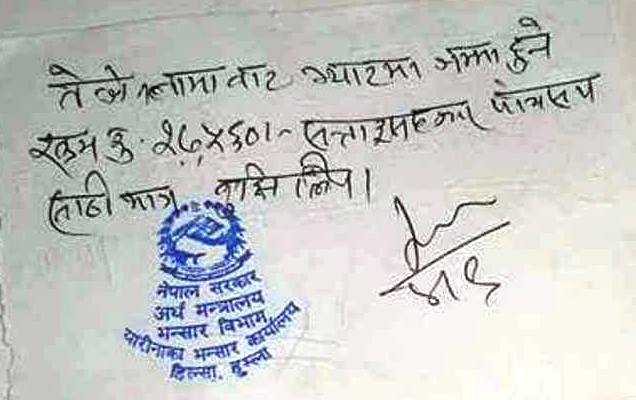 तेजे लामा बाट भ्याटमा जम्मा हुने
रकम रु. २७,५६०।- सत्ताइसहजार पाँचसय
साठी मात्र बुझि लिए।
नेपाल सरकार
अर्थ मन्त्रालय
भन्सार विभाग
यारीनाका भन्सार कार्यालय
हिल्सा, हुम्ला